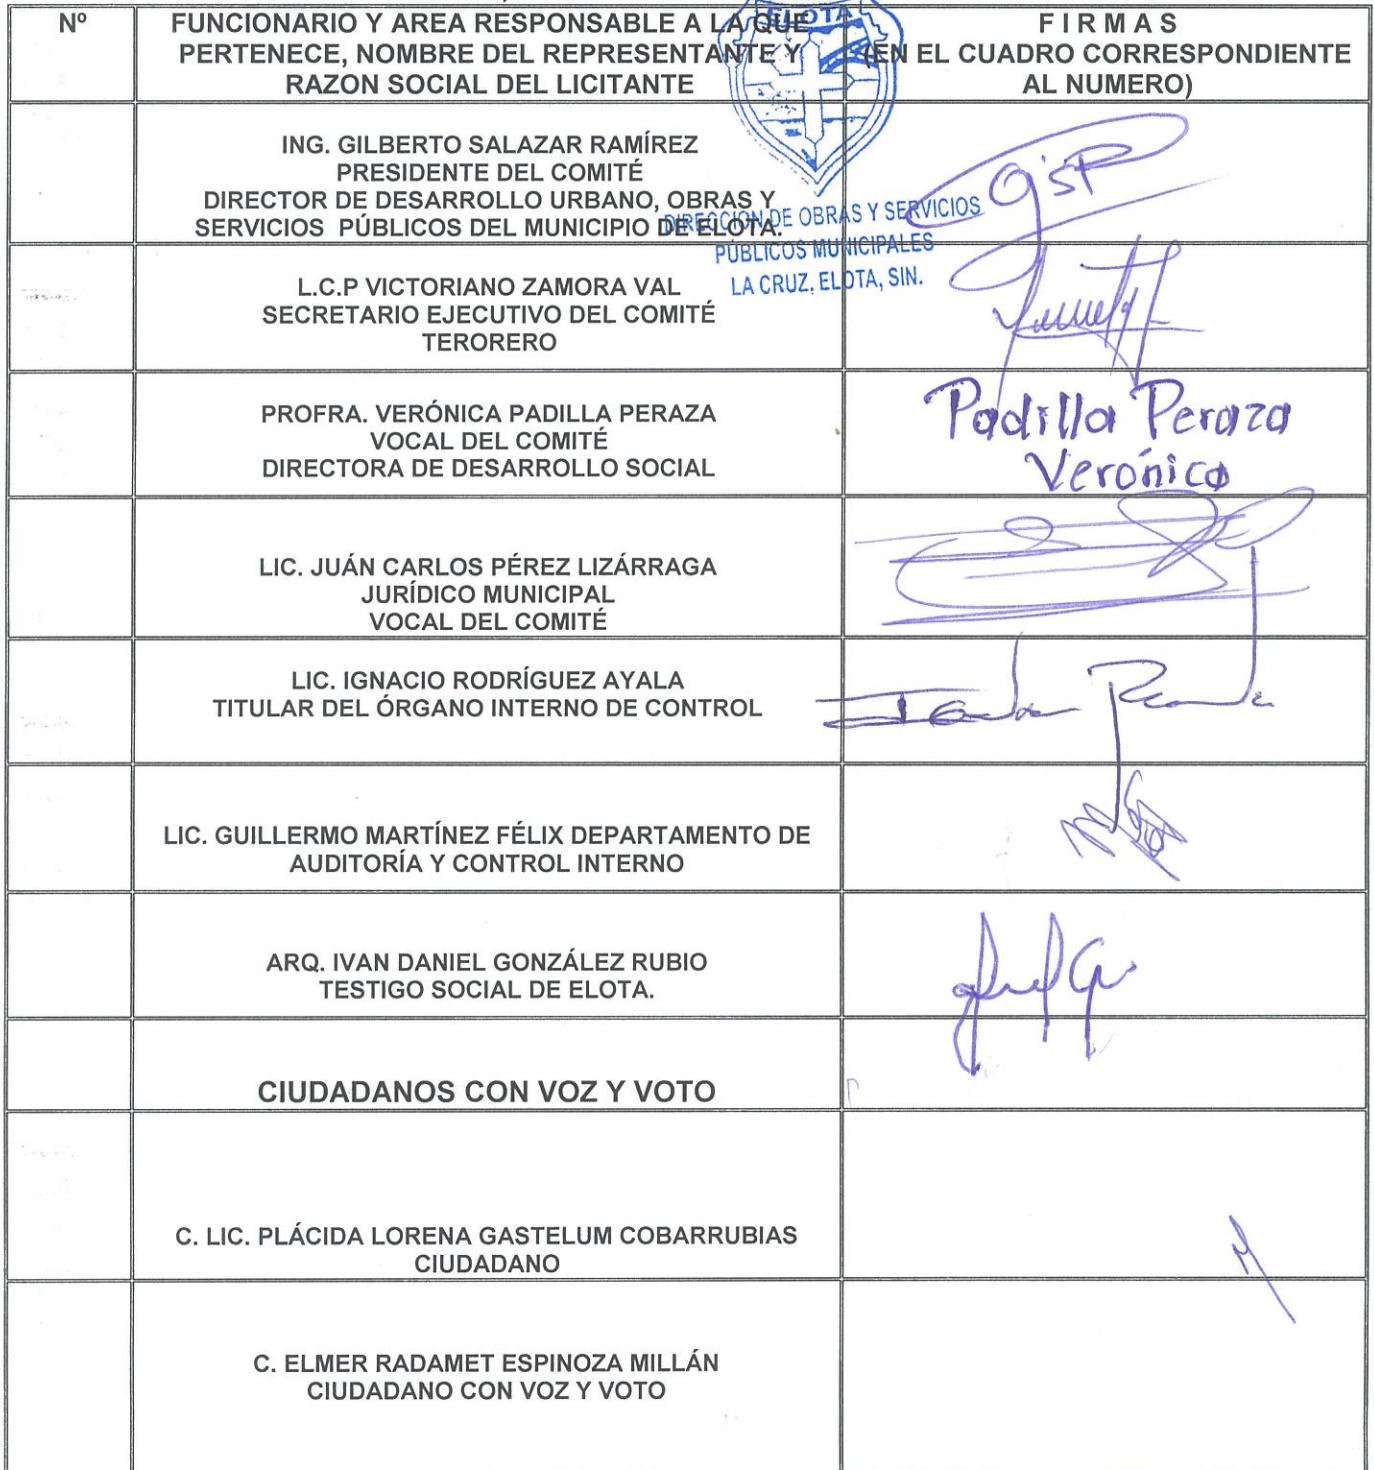 Nº
FUNCIONARIO Y AREA RESPONSABLE A LA QUE
PERTENECE, NOMBRE DEL REPRESENTANTE Y
RAZON SOCIAL DEL LICITANTE
F I R M A S
(EN EL CUADRO CORRESPONDIENTE
AL NUMERO)
ELOTA
ING. GILBERTO SALAZAR RAMÍREZ
PRESIDENTE DEL COMITÉ
DIRECTOR DE DESARROLLO URBANO, OBRAS Y
SERVICIOS PÚBLICOS DEL MUNICIPIO DE ELOTA.
GSR
DIRECCION DE OBRAS Y SERVICIOS
PÚBLICOS MUNICIPALES
LA CRUZ, ELOTA, SIN.
L.C.P VICTORIANO ZAMORA VAL
SECRETARIO EJECUTIVO DEL COMITÉ
TERORERO
PROFRA. VERÓNICA PADILLA PERAZA
VOCAL DEL COMITÉ
DIRECTORA DE DESARROLLO SOCIAL
Padilla Peraza
Verónica
LIC. JUÁN CARLOS PÉREZ LIZÁRRAGA
JURÍDICO MUNICIPAL
VOCAL DEL COMITÉ
LIC. IGNACIO RODRÍGUEZ AYALA
TITULAR DEL ÓRGANO INTERNO DE CONTROL
LIC. GUILLERMO MARTÍNEZ FÉLIX DEPARTAMENTO DE
AUDITORÍA Y CONTROL INTERNO
ARQ. IVAN DANIEL GONZÁLEZ RUBIO
TESTIGO SOCIAL DE ELOTA.
CIUDADANOS CON VOZ Y VOTO
C. LIC. PLÁCIDA LORENA GASTELUM COBARRUBIAS
CIUDADANO
C. ELMER RADAMET ESPINOZA MILLÁN
CIUDADANO CON VOZ Y VOTO